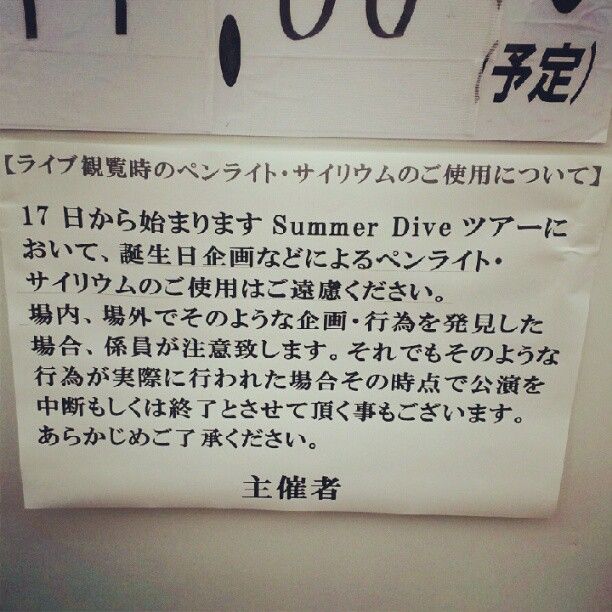 (予定)
【ライブ観覧時のペンライト・サイリウムのご使用について】
17日から始まります Summer Dive ツアーに
おいて、誕生日企画などによるペンライト・
サイリウムのご使用はご遠慮ください。
場内、場外でそのような企画・行為を発見した
場合、係員が注意致します。それでもそのような
行為が実際に行われた場合その時点で公演を
中断もしくは終了とさせて頂く事もございます。
あらかじめご了承ください。
主催者